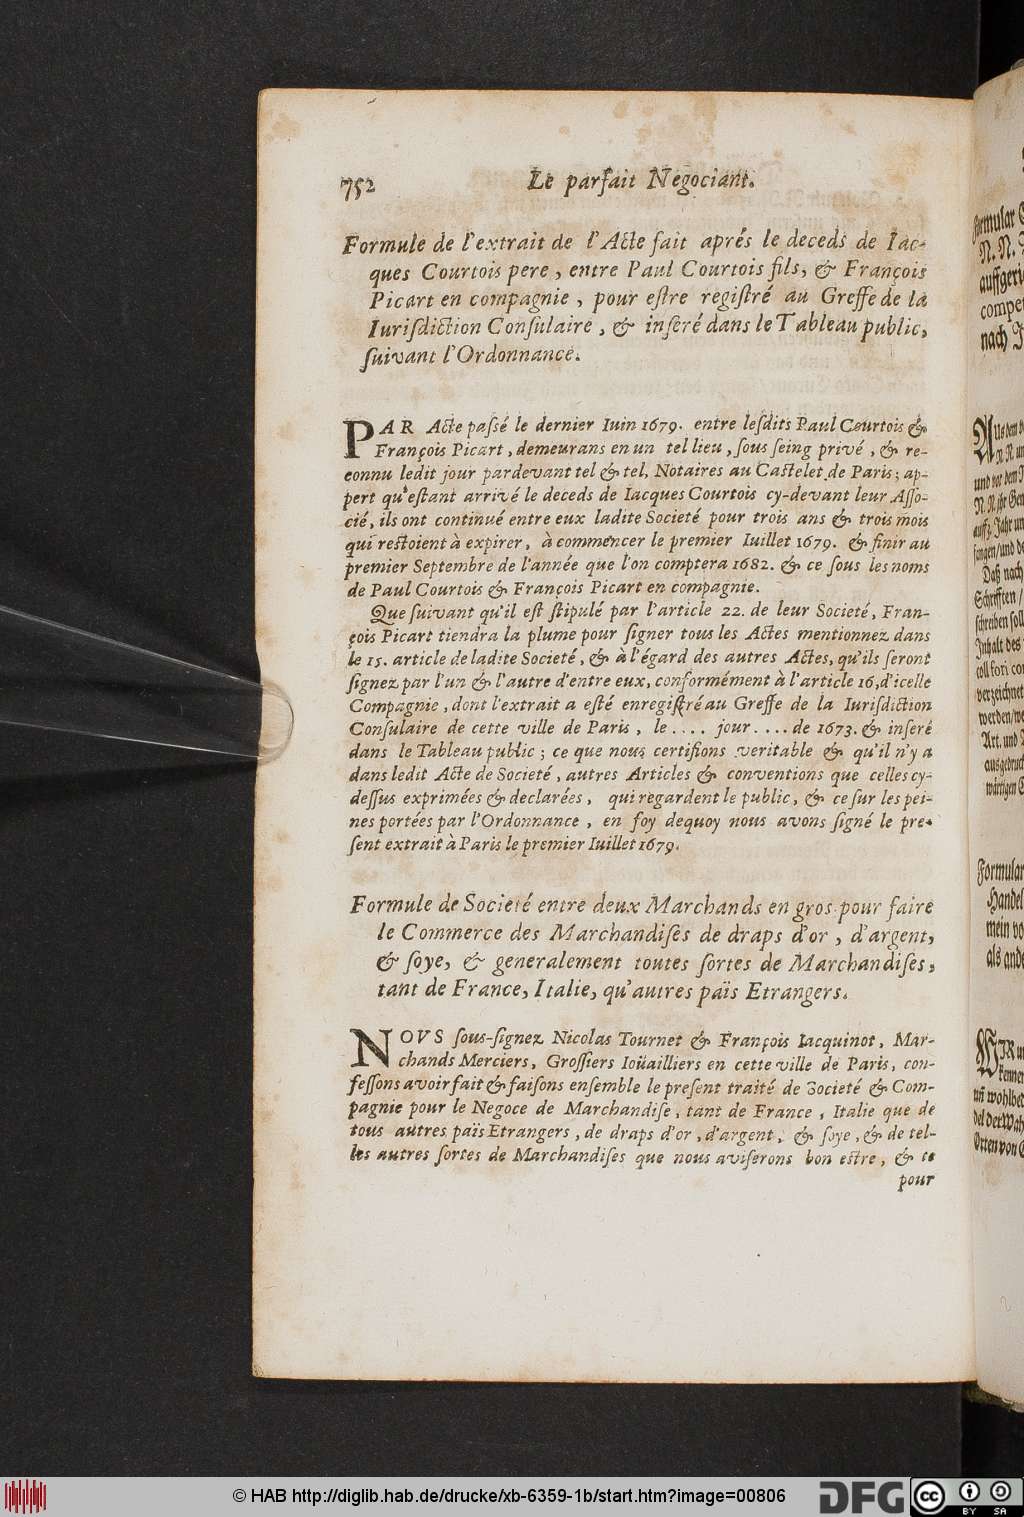 752 Le parfait Negociant.
Formule de l'extrait de l'Acte fait aprés le deceds de Iac-
ques Courtois pere, entre Paul Courtois fils, & François
Picart en compagnie, pour estre registré au Greffe de la
Iurisdiction Consulaire, & inseré dans le Tableau public,
suivant l'Ordonnance.
PAR Acte passé le dernier Iuin 1679. entre lesdits Paul Courtois &
François Picart, demeurans en un tel lieu, sous seing privé, & re-
connu ledit jour pardevant tel & tel, Notaires au Castelet de Paris; ap-
pert qu'estant arrivé le deceds de Iacques Courtois cy-devant leur Asso-
cié, ils ont continué entre eux ladite Societé pour trois ans & trois mois
qui restoient à expirer, à commencer le premier Iuillet 1679. & finir au
premier Septembre de l'année que l'on comptera 1682. & ce sous les noms
de Paul Courtois & François Picart en compagnie.
Que suivant qu'il est stipulé par l'article 22. de leur Societé, Fran-
çois Picart tiendra la plume pour signer tous les Actes mentionnez dans
le 15. article de ladite Societé, & à l'égard des autres Actes, qu'ils seront
signez par l'un & l'autre d'entre eux, conformément à l'article 16, d'icelle
Compagnie, dont l'extrait a esté enregistré au Greffe de la Iurisdiction
Consulaire de cette ville de Paris, le .... jour .... de 1673. & inseré
dans le Tableau public; ce que nous certifions veritable & qu'il n'y a
dans ledit Acte de Societé, autres Articles & conventions que celles cy-
dessus exprimées & declarées, qui regardent le public, & ce sur les pei-
nes portées par l'Ordonnance, en foy dequoy nous avons signé le pre-
sent extrait à Paris le premier Iuillet 1679.
Formule de Societé entre deux Marchands en gros pour faire
le Commerce des Marchandises de draps d'or, d'argent,
& soye, & generalement toutes sortes de Marchandises,
tant de France, Italie, qu'autres païs Etrangers.
NOVS sous-signez Nicolas Tournet & François Iacquinot, Mar-
chands Merciers, Grossiers Ioüailliers en cette ville de Paris, con-
fessons avoir fait & faisons ensemble le present traité de Societé & Com-
pagnie pour le Negoce de Marchandise, tant de France, Italie que de
tous autres païs Etrangers, de draps d'or, d'argent, & soye, & de tel-
les autres sortes de Marchandises que nous aviserons bon estre, & ce
pour
Formular
N. N.
nach
Formular
Handel
mein
© HAB http://diglib.hab.de/drucke/xb-6359-1b/start.htm?image=00806
DFG
cc BY SA